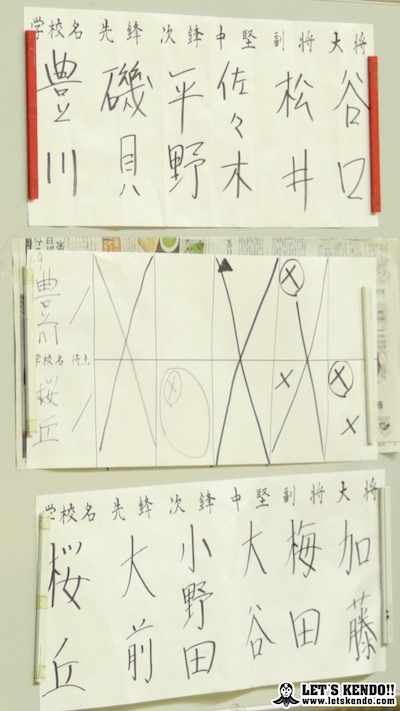 学校名 先鋒 次鋒 中堅 副将 大将
豊川 磯貝 平野 佐々木 松井 谷口
豊川
学校名 得点
桜丘
学校名 先鋒 次鋒 中堅 副将 大将
桜丘 大前 小野田 大谷 梅田 加藤
LET'S KENDO!!
www.letskendo.com